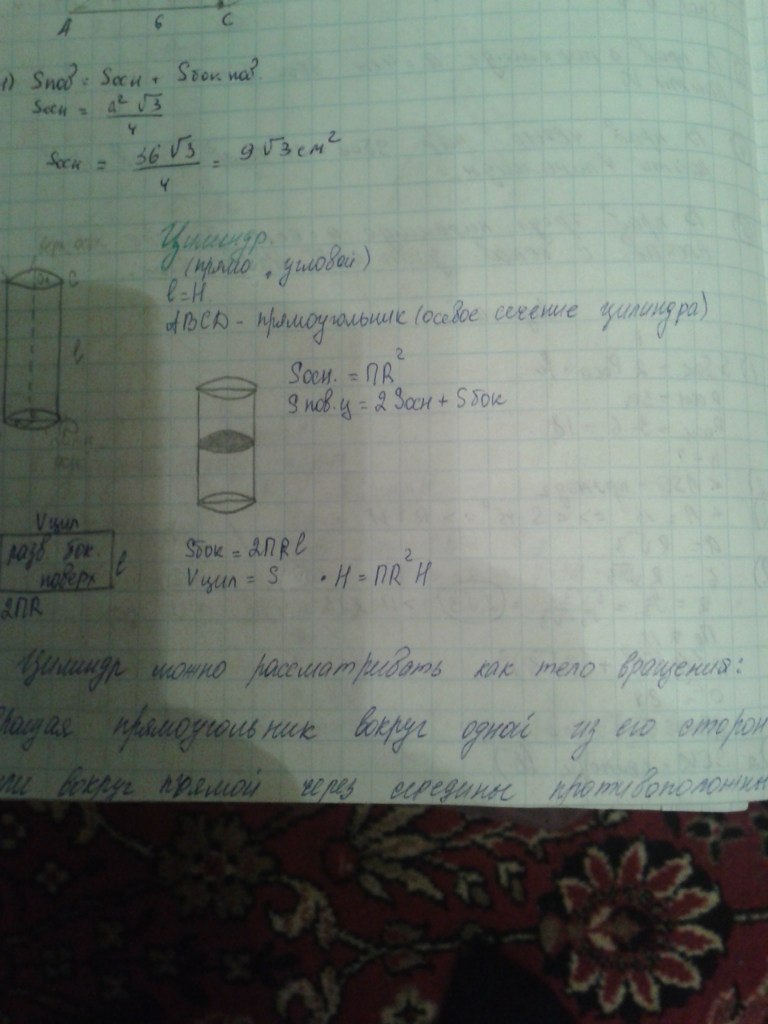 A 6 C
1) Sпов = Sосн + Sбок пов.
Sосн = a² √3 / 4
Sосн = 36 √3 / 4 = 9 √3 см²
Цилиндр
(прямо угловой)
l = H
ABCD - прямоугольник (осевое сечение цилиндра)
C
l
Sосн. = ПR²
Sпов.ц = 2 Sосн + Sбок
Vцил
разв бок
поверх
l
2ПR
Sбок = 2ПRl
Vцил = S · H = ПR² H
Цилиндр можно рассматривать как тело вращения:
вращая прямоугольник вокруг одной из его сторон
или вокруг прямой через середины противоположны